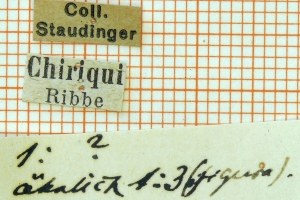 Coll.
Staudinger
Chiriqui
Ribbe
1: ?
ähnlich 1:3 (figura).